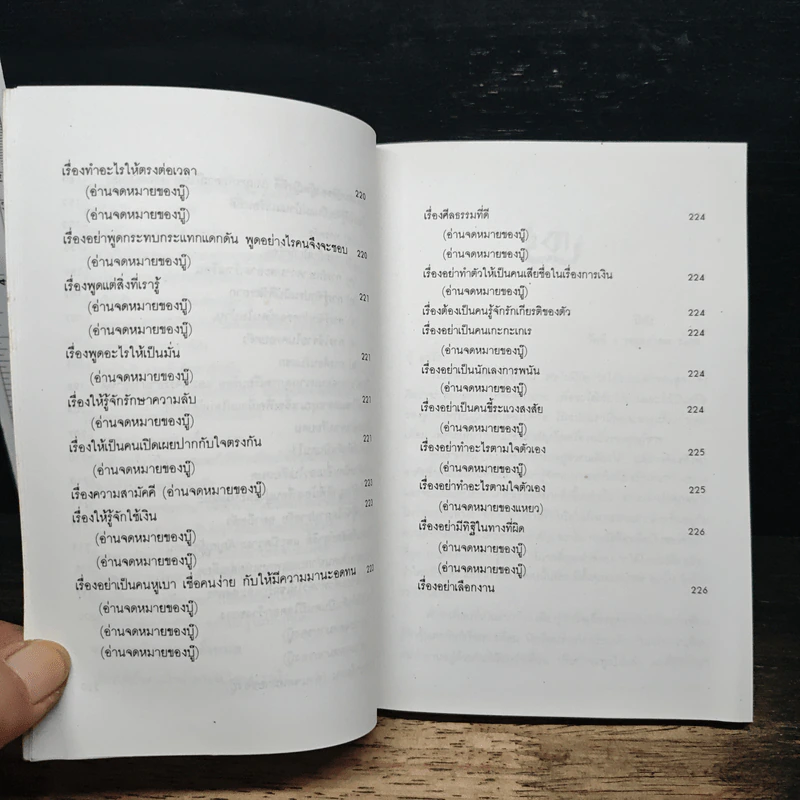 เรื่องทำอะไรให้ตรงต่อเวลา 220
(อ่านจดหมายของบู๊)
(อ่านจดหมายของบู๊)
เรื่องอย่าพูดกระทบกระแทกแดกดัน พูดอย่างไรคนจึงจะชอบ 220
(อ่านจดหมายของบู๊)
เรื่องพูดแต่สิ่งที่เรารู้ 221
(อ่านจดหมายของบู๊)
(อ่านจดหมายของบู๊)
เรื่องพูดอะไรให้เป็นมั่น 221
(อ่านจดหมายของบู๊)
เรื่องให้รู้จักรักษาความลับ 221
(อ่านจดหมายของบู๊)
เรื่องให้เป็นคนเปิดเผยปากกับใจตรงกัน 221
(อ่านจดหมายของบู๊)
เรื่องความสามัคคี (อ่านจดหมายของบู๊)
เรื่องให้รู้จักใช้เงิน
(อ่านจดหมายของบู๊)
(อ่านจดหมายของบู๊)
เรื่องอย่าเป็นคนหูเบา เชื่อคนง่าย กับให้มีความมานะอดทน
(อ่านจดหมายของบู๊)
(อ่านจดหมายของบู๊)
(อ่านจดหมายของบู๊)
เรื่องศีลธรรมที่ดี 224
(อ่านจดหมายของบู๊)
(อ่านจดหมายของบู๊)
เรื่องอย่าทำตัวให้เป็นคนเสียชื่อในเรื่องการเงิน 224
(อ่านจดหมายของบู๊)
เรื่องต้องเป็นคนรู้จักรักเกียรติของตัว 224
เรื่องอย่าเป็นคนเกะกะเกเร 224
(อ่านจดหมายของบู๊)
เรื่องอย่าเป็นนักเลงการพนัน 224
(อ่านจดหมายของบู๊)
เรื่องอย่าเป็นคนขี้ระแวงสงสัย 224
(อ่านจดหมายของบู๊)
เรื่องอย่าทำอะไรตามใจตัวเอง 225
(อ่านจดหมายของบู๊)
เรื่องอย่าทำอะไรตามใจตัวเอง 225
(อ่านจดหมายของแหยว)
เรื่องอย่ามีทิฐิในทางที่ผิด 226
(อ่านจดหมายของบู๊)
(อ่านจดหมายของบู๊)
เรื่องอย่าเลือกงาน 226